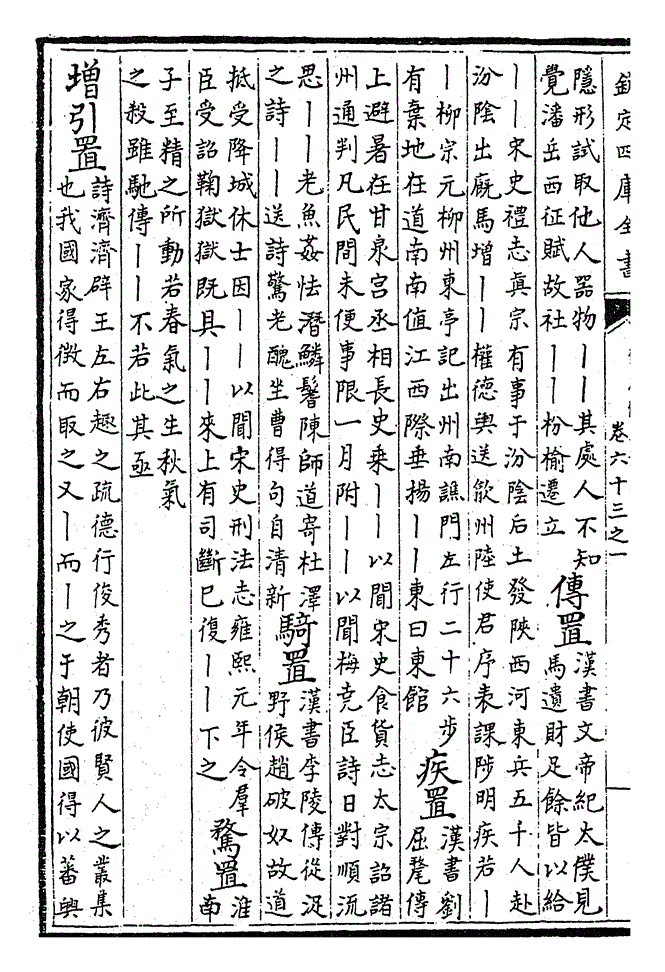 欽定四庫全書
卷六十三之一
隱形試取他人器物丨丨其處人不知
覺潘岳西征賦故社丨丨枌榆遷立
傳置
漢書文帝紀太僕見
馬遺財足餘皆以給
丨丨宋史禮志真宗有事于汾陰后土發陝西河東兵五千人赴
汾陰出廐馬增丨丨權德輿送歙州陸使君序表課陟明疾若丨
丨柳宗元柳州東亭記出州南譙門左行二十六步
有棄地在道南南值江西際垂揚丨丨東曰東館
疾置
漢書劉
屈氂傳
上避暑在甘泉宫丞相長史乘丨丨以聞宋史食貨志太宗詔諸
州通判凡民間未便事限一月附丨丨以聞梅堯臣詩日對順流
思丨丨老魚姦怯潛鱗鬐陳師道寄杜澤
之詩丨丨送詩驚老醜坐曹得句自清新
騎置
漢書李陵傳從浞
野侯趙破奴故道
抵受降城休士因丨丨以聞宋史刑法志雍熙元年令羣
臣受詔鞫獄獄既具丨丨來上有司斷已復丨丨下之
驁置
淮
南
子至精之所動若春氣之生秋氣
之殺雖馳傳丨丨不若此其亟
增引置
詩濟濟辟王左右趣之疏德行俊秀者乃彼賢人之叢集
也我國家得徴而取之又丨而丨之于朝使國得以蕃興